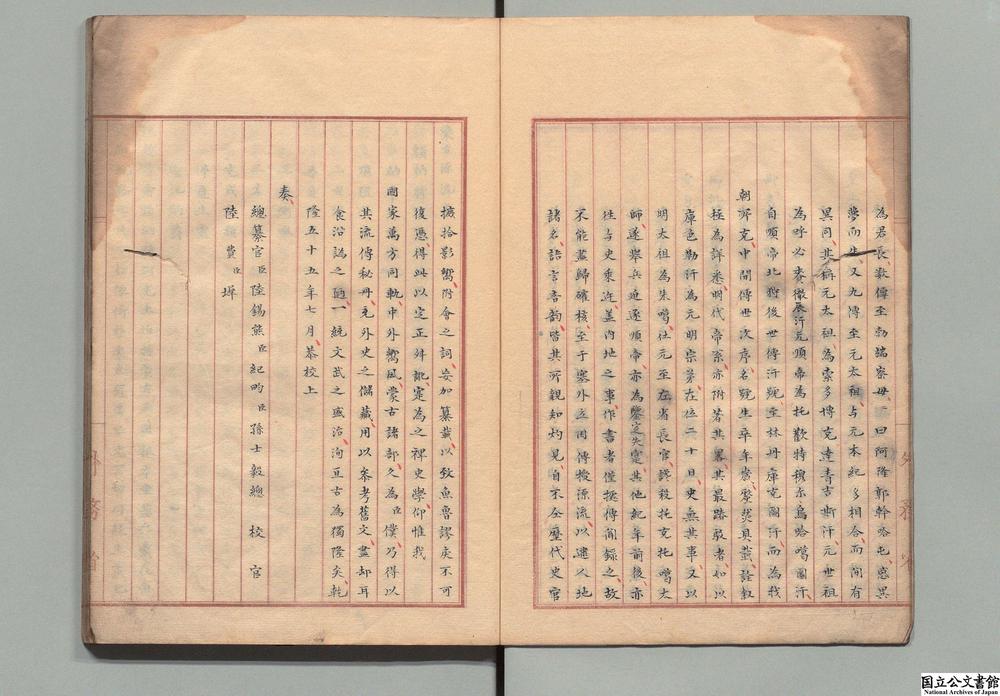 為君長數傳至勃端察母一曰阿隆郭幹哈屯感異
夢而生又九傳至元太祖与元本紀多相合而間有
異同其稱元太祖為索多博克達青吉斯汗元世祖
為呼必賚徹辰汗元順帝為托歡特穆尔烏哈噶圖汗
自順帝北狩後世傳汗號至林丹庫克圖汗而為我
朝所克中間傳世次序名號生卒年歲釐然具載詮叙
極為詳悉明代帝系亦附著其畧其最踳駁者如以
庫色勒汗為元明宗弟在位二十日史無其事又以
明太祖為朱噶仕元至左省長官讒殺托克托噶太
師遂舉兵迫逐順帝亦為鑿空失寔其他紀年前後亦
徃与史乘迕盖内地之事作書者僅據傳聞錄之故
不能盡歸確核至于塞外立國傳授源流以建人地
諸名語言音韵皆其所親知灼見自不在歷代史官
摭拾影響附會之詞妄加纂載以致魚魯謬戾不可
復憑得此以定正舛訛寔為之裨史學仰惟我
國家萬方同軌中外嚮風蒙古諸部久為臣僕乃得以
其流傳秘册充外史之儲藏用以參考舊文盡却耳
食沿譌之陋一統文武之盛洽洵亘古為獨隆矣乾
隆五十五年七月恭校上
奏
總纂官臣陸錫熊臣紀昀臣孫士毅總校官
陸費臣墀
外務省
国立公文書館
National Archives of Japan